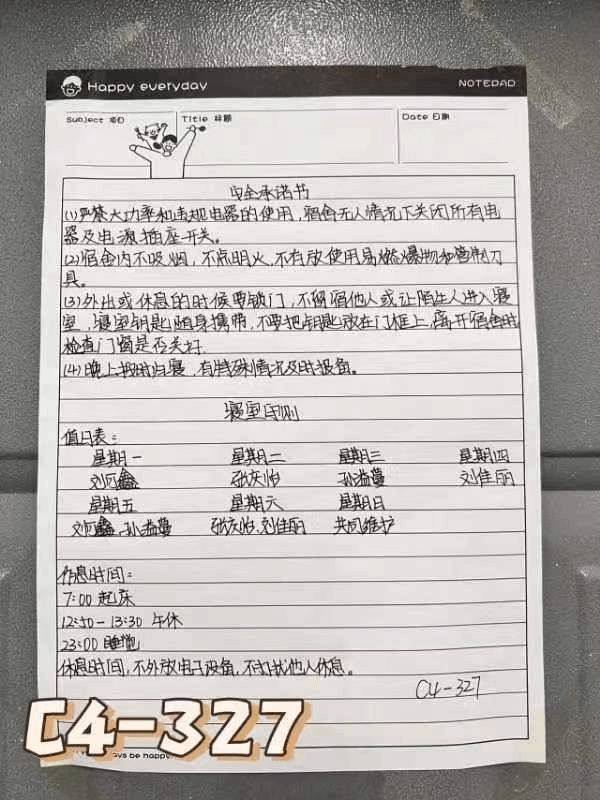 Happy everyday
NOTEPAD
Subject 项目
Title 标题
Date 日期
安全承诺书
(1)严禁大功率和违规电器的使用,宿舍无人情况下关闭所有电
器及电源插座开关。
(2)宿舍内不吸烟,不点明火,不存放使用易燃爆物和管制刀
具。
(3)外出或休息的时候要锁门,不留宿他人或让陌生人进入寝
室,寝室钥匙随身携带,不要把钥匙放在门框上,离开宿舍时
检查门窗是否关好.
(4)晚上按时归寝,有特殊情况及时报备。
寝室守则
值日表:
星期一 星期二 星期三 星期四
刘阿鑫 张庆怡 孙溢蔓 刘佳丽
星期五 星期六 星期日
刘阿鑫、孙溢蔓 张庆怡、刘佳丽 共同维护
作息时间:
7:00 起床
12:50-13:30 午休
23:00 睡觉
休息时间,不外放电子设备,不打扰他人休息。
C4-327
C4-327
ays be happy.